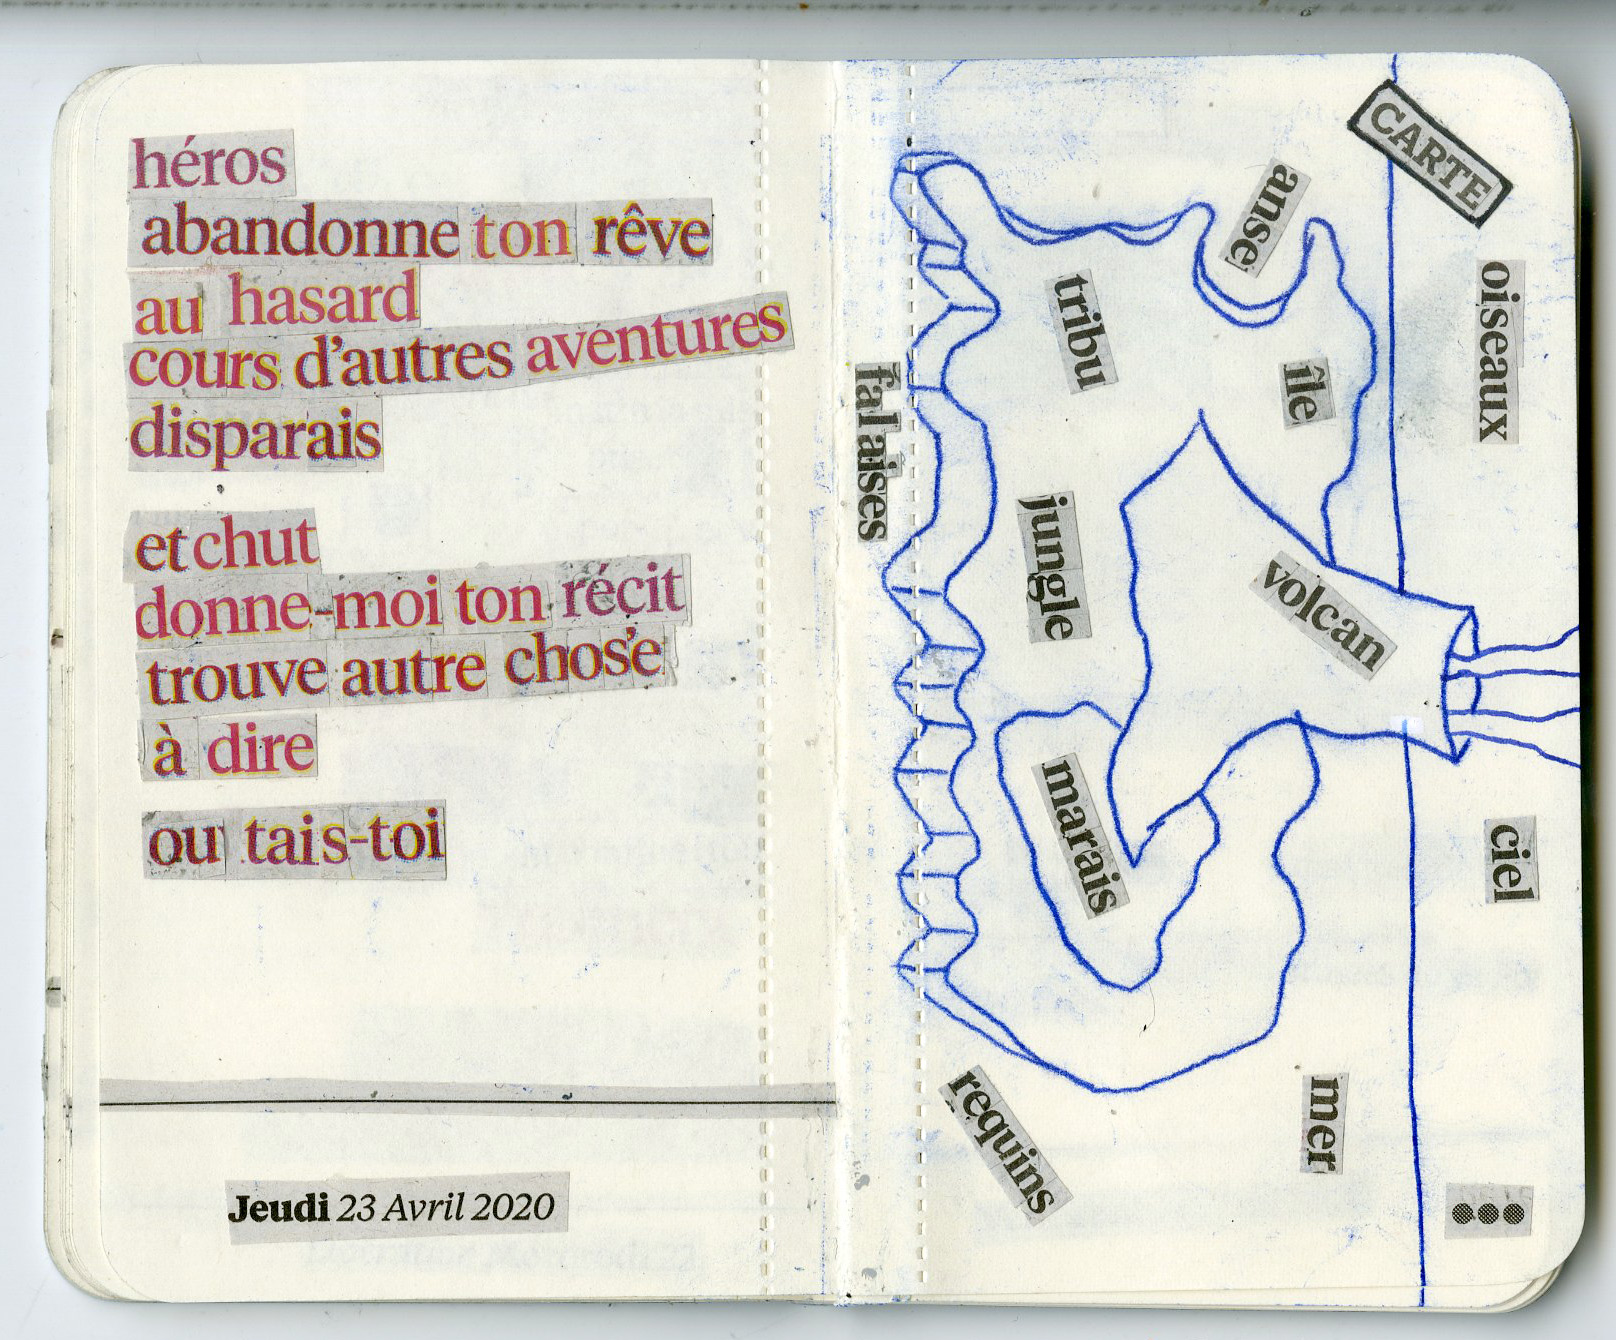 héros
abandonne ton rêve
au hasard
cours d'autres aventures
disparais
et chut
donne-moi ton récit
trouve autre chos'e
à dire
ou tais-toi
Jeudi 23 Avril 2020
CARTE
oiseaux
ciel
anse
île
volcan
mer
tribu
jungle
marais
requins
falaises